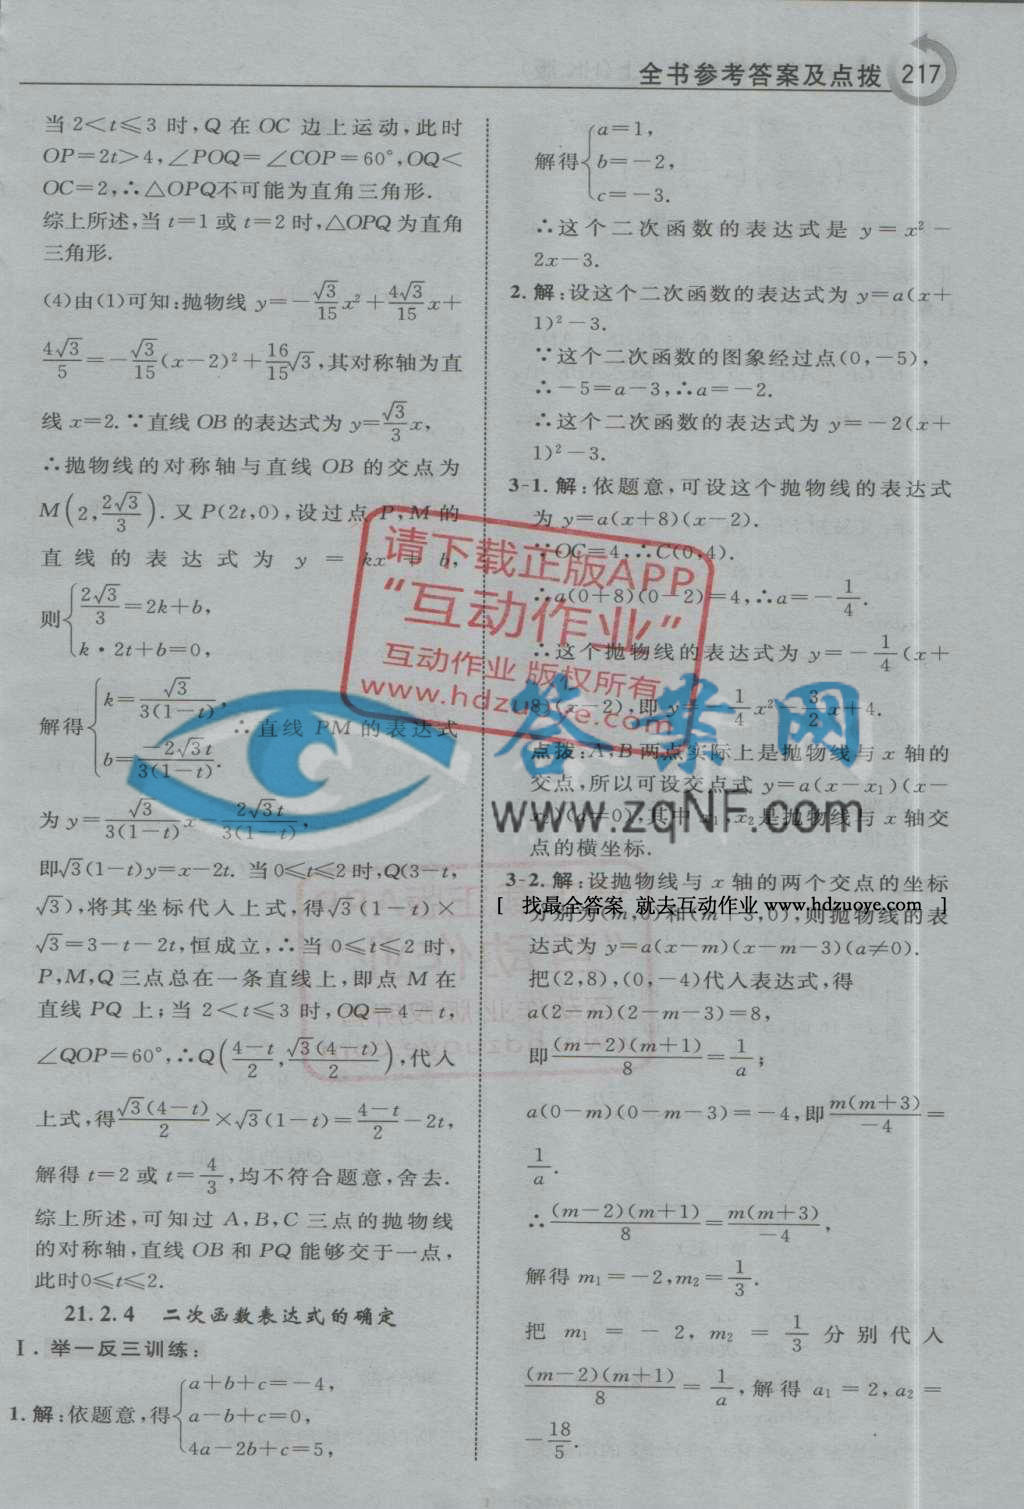 全书参考答案及点拨 217
当2<t≤3时,Q在OC边上运动,此时
OP=2t>4,∠POQ=∠COP=60°,OQ<
OC=2,∴△OPQ不可能为直角三角形.
综上所述,当t=1或t=2时,△OPQ为直角
三角形.
(4)由(1)可知:抛物线 y=-√3/15 x²+4√3/15 x+
4√3/5=-√3/15(x-2)²+16/15√3,其对称轴为直
线x=2.∵直线OB的表达式为y=√3/3 x,
∴抛物线的对称轴与直线OB的交点为
M(2,2√3/3).又P(2t,0),设过点P,M的
直线的表达式为y=kx+b,
则{2√3/3=2k+b,
k·2t+b=0,
解得{k=√3/3(1-t),
b=-2√3t/3(1-t).
∴直线PM的表达式
为y=√3/3(1-t) x-2√3t/3(1-t),
即√3(1-t)y=x-2t.当0≤t≤2时,Q(3-t,
√3),将其坐标代入上式,得√3(1-t)×
√3=3-t-2t,恒成立,∴当0≤t≤2时,
P,M,Q三点总在一条直线上,即点M在
直线PQ上;当2<t≤3时,OQ=4-t,
∠QOP=60°,∴Q(4-t/2,√3(4-t)/2),代入
上式,得√3(4-t)/2×√3(1-t)=4-t/2-2t,
解得t=2或t=4/3,均不符合题意,舍去.
综上所述,可知过A,B,C三点的抛物线
的对称轴,直线OB和PQ能够交于一点,
此时0≤t≤2.
21.2.4 二次函数表达式的确定
Ⅰ.举一反三训练:
1.解:依题意,得{a+b+c=-4,
a-b+c=0,
4a-2b+c=5,
解得{a=1,
b=-2,
c=-3.
∴这个二次函数的表达式是y=x²-
2x-3.
2.解:设这个二次函数的表达式为y=a(x+
1)²-3.
∵这个二次函数的图象经过点(0,-5),
∴-5=a-3,∴a=-2.
∴这个二次函数的表达式为y=-2(x+
1)²-3.
3-1.解:依题意,可设这个抛物线的表达式
为y=a(x+8)(x-2).
∵OC=4,∴C(0,4).
∴a(0+8)(0-2)=4,∴a=-1/4.
∴这个抛物线的表达式为y=-1/4(x+
8)(x-2),即y=-1/4 x²-3/2 x+4.
点拨:A,B两点实际上是抛物线与x轴的
交点,所以可设交点式y=a(x-x₁)(x-
x₂)(a≠0),其中x₁,x₂是抛物线与x轴交
点的横坐标.
3-2.解:设抛物线与x轴的两个交点的坐标
分别为(m,0)和(m+3,0),则抛物线的表
达式为y=a(x-m)(x-m-3)(a≠0).
把(2,8),(0,-4)代入表达式,得
a(2-m)(2-m-3)=8,
即(m-2)(m+1)/8=1/a;
a(0-m)(0-m-3)=-4,即m(m+3)/-4=
1/a.
∴(m-2)(m+1)/8=m(m+3)/-4,
解得m₁=-2,m₂=1/3.
把m₁=-2,m₂=1/3分别代入
(m-2)(m+1)/8=1/a,解得a₁=2,a₂=
-18/5.
请下载正版APP
“互动作业”
互动作业 版权所有
www.hdzuoye.com
答案网
www.zqNF.com
[ 找最全答案 就去互动作业 www.hdzuoye.com ]